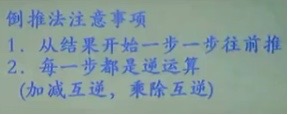 倒推法注意事项
1. 从结果开始一步一步往前推
2. 每一步都是逆运算
(加减互逆, 乘除互逆)